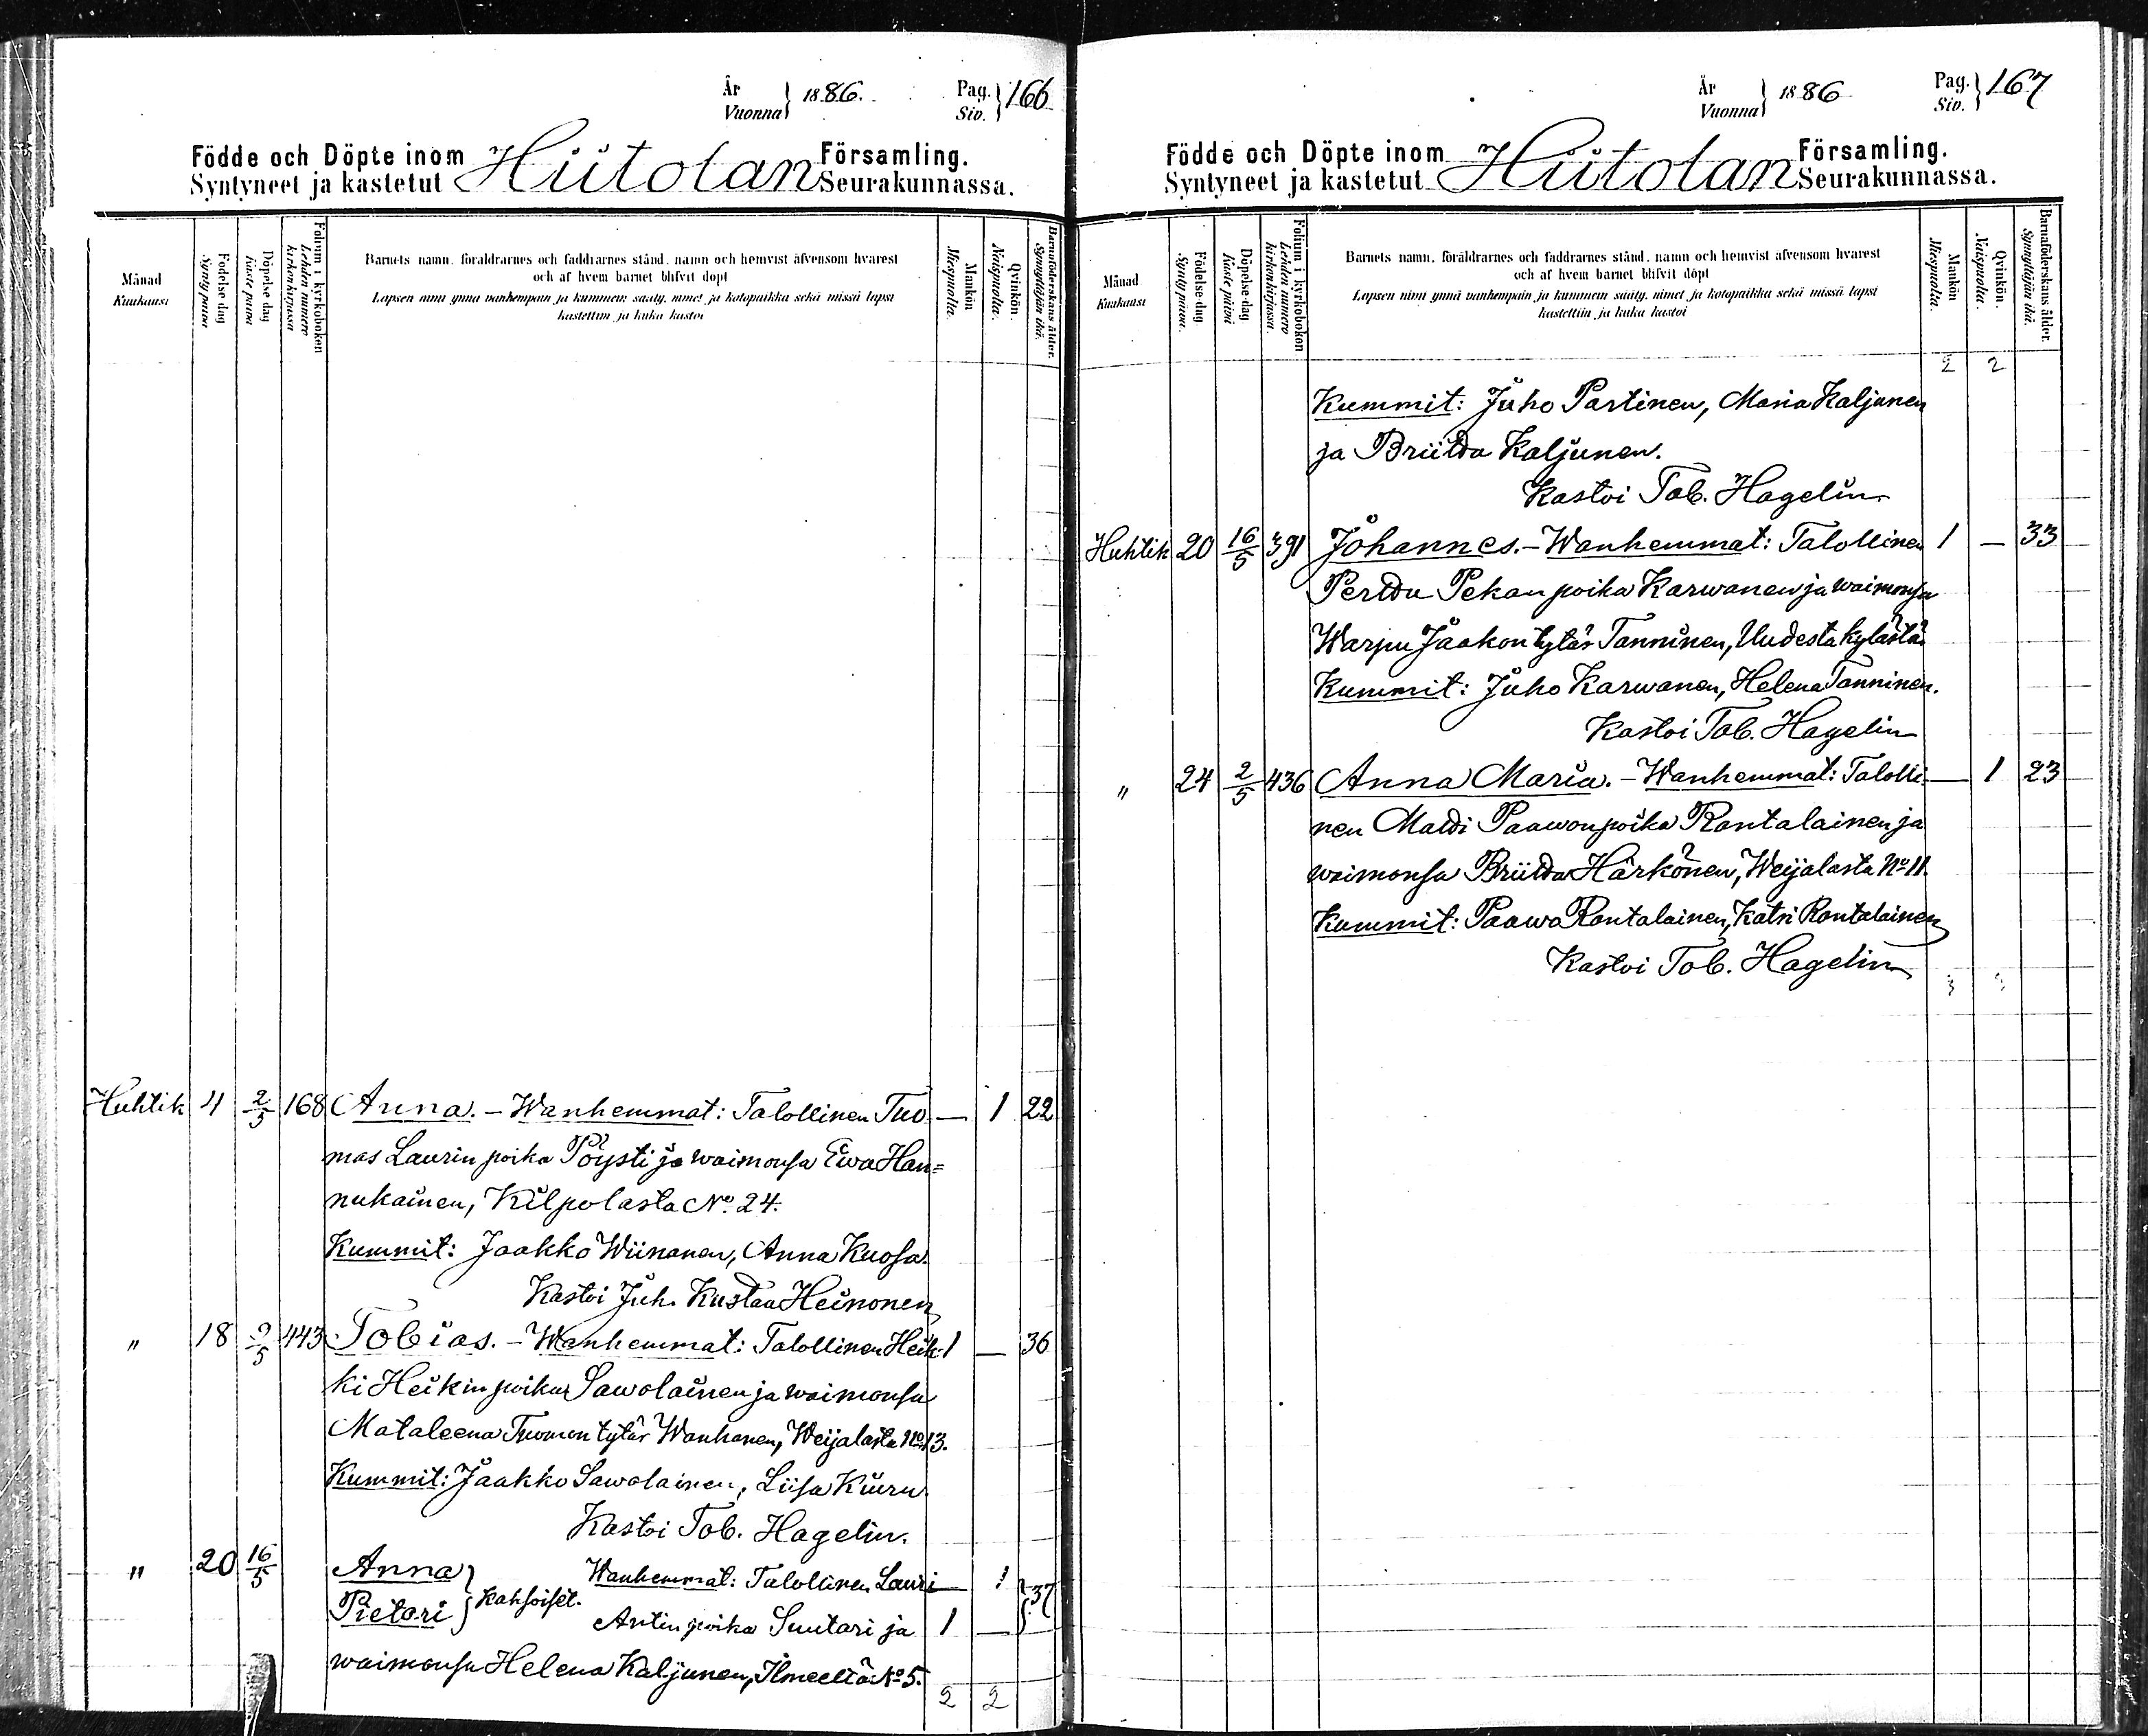 År
Vuonna } 1886. Pag.
Siv. } 166
Födde och Döpte inom Hiitolan Församling.
Syntyneet ja kastetut Seurakunnassa.
Månad
Kuukausi
Födelse-dag
Synty päivä
Döpelse dag
Kaste päivä
Folium i kyrkoboken
Lehden numero kirkonkirjassa
Barnets namn, föräldrarnes och faddrarnes stånd, namn och hemvist äfvensom hvarest
och af hvem barnet blifvit döpt
Lapsen nimi ynnä vanhempain ja kummein sääty, nimet ja kotopaikka sekä missä lapsi
kastettiin ja kuka kastoi
Mankön
Miespuolta.
Qvinkön.
Naispuolta.
Barnaföderskans ålder.
Synnyttäjän ikä.
Huhtik 4 2/5 168 Anna. – Wanhemmat: Talollinen Tuo- — 1 22
mas Laurin poika Pöysti ja waimonsa Ewa Han=
nukainen, Kilpolasta No. 24.
Kummit: Jaakko Wiinanen, Anna Kuosa.
Kastoi Juh. Kustaa Heinonen
" 18 2/5 443 Tobias. – Wanhemmat: Talollinen Heik- 1 — 36
ki Heikin poika Sawolainen ja waimonsa
Mataleena Tuomon tytär Wanhanen, Weijalasta No 13.
Kummit: Jaakko Sawolainen, Liisa Kiuru
Kastoi Tob. Hagelin.
" 20 16/5 Anna } Wanhemmat: Talollinen Lauri — 1 } 37
Pietari } Kaksoiset. Antin poika Suutari ja 1 —
waimonsa Helena Kaljunen, Ilmeeltä No 5.
2 2
År
Vuonna } 1886 Pag.
Siv. } 167
Födde och Döpte inom Hiitolan Församling.
Syntyneet ja kastetut Seurakunnassa.
Månad
Kuukausi
Födelse-dag
Synty päivä.
Döpelse-dag
Kaste päivä
Folium i kyrkoboken
Lehden numero kirkonkirjassa.
Barnets namn, föräldrarnes och faddrarnes stånd, namn och hemvist äfvensom hvarest
och af hvem barnet blifvit döpt
Lapsen nimi ynnä vanhempain ja kummein sääty, nimet ja kotopaikka sekä missä lapsi
kastettiin ja kuka kastoi
Mankön
Miespuolta.
Qvinkön.
Naispuolta.
Barnaföderskans ålder.
Synnyttäjän ikä.
2 2
Kummit: Juho Partinen, Maria Kaljunen
ja Briitta Kaljunen.
Kastoi Tob. Hagelin
Huhtik 20 16/5 391 Johannes. – Wanhemmat: Talollinen 1 — 33
Perttu Pekan poika Karwanen ja waimonsa
Warpu Jaakon tytär Tanninen, Uudesta kylästä
Kummit: Juho Karwanen, Helena Tanninen.
Kastoi Tob. Hagelin
" 24 2/5 436 Anna Maria. – Wanhemmat: Talolli- — 1 23
nen Matti Paawon poika Rantalainen ja
waimonsa Briitta Härkönen, Weijalasta No 11.
Kummit: Paawo Rantalainen, Katri Rantalainen
Kastoi Tob. Hagelin
3 3